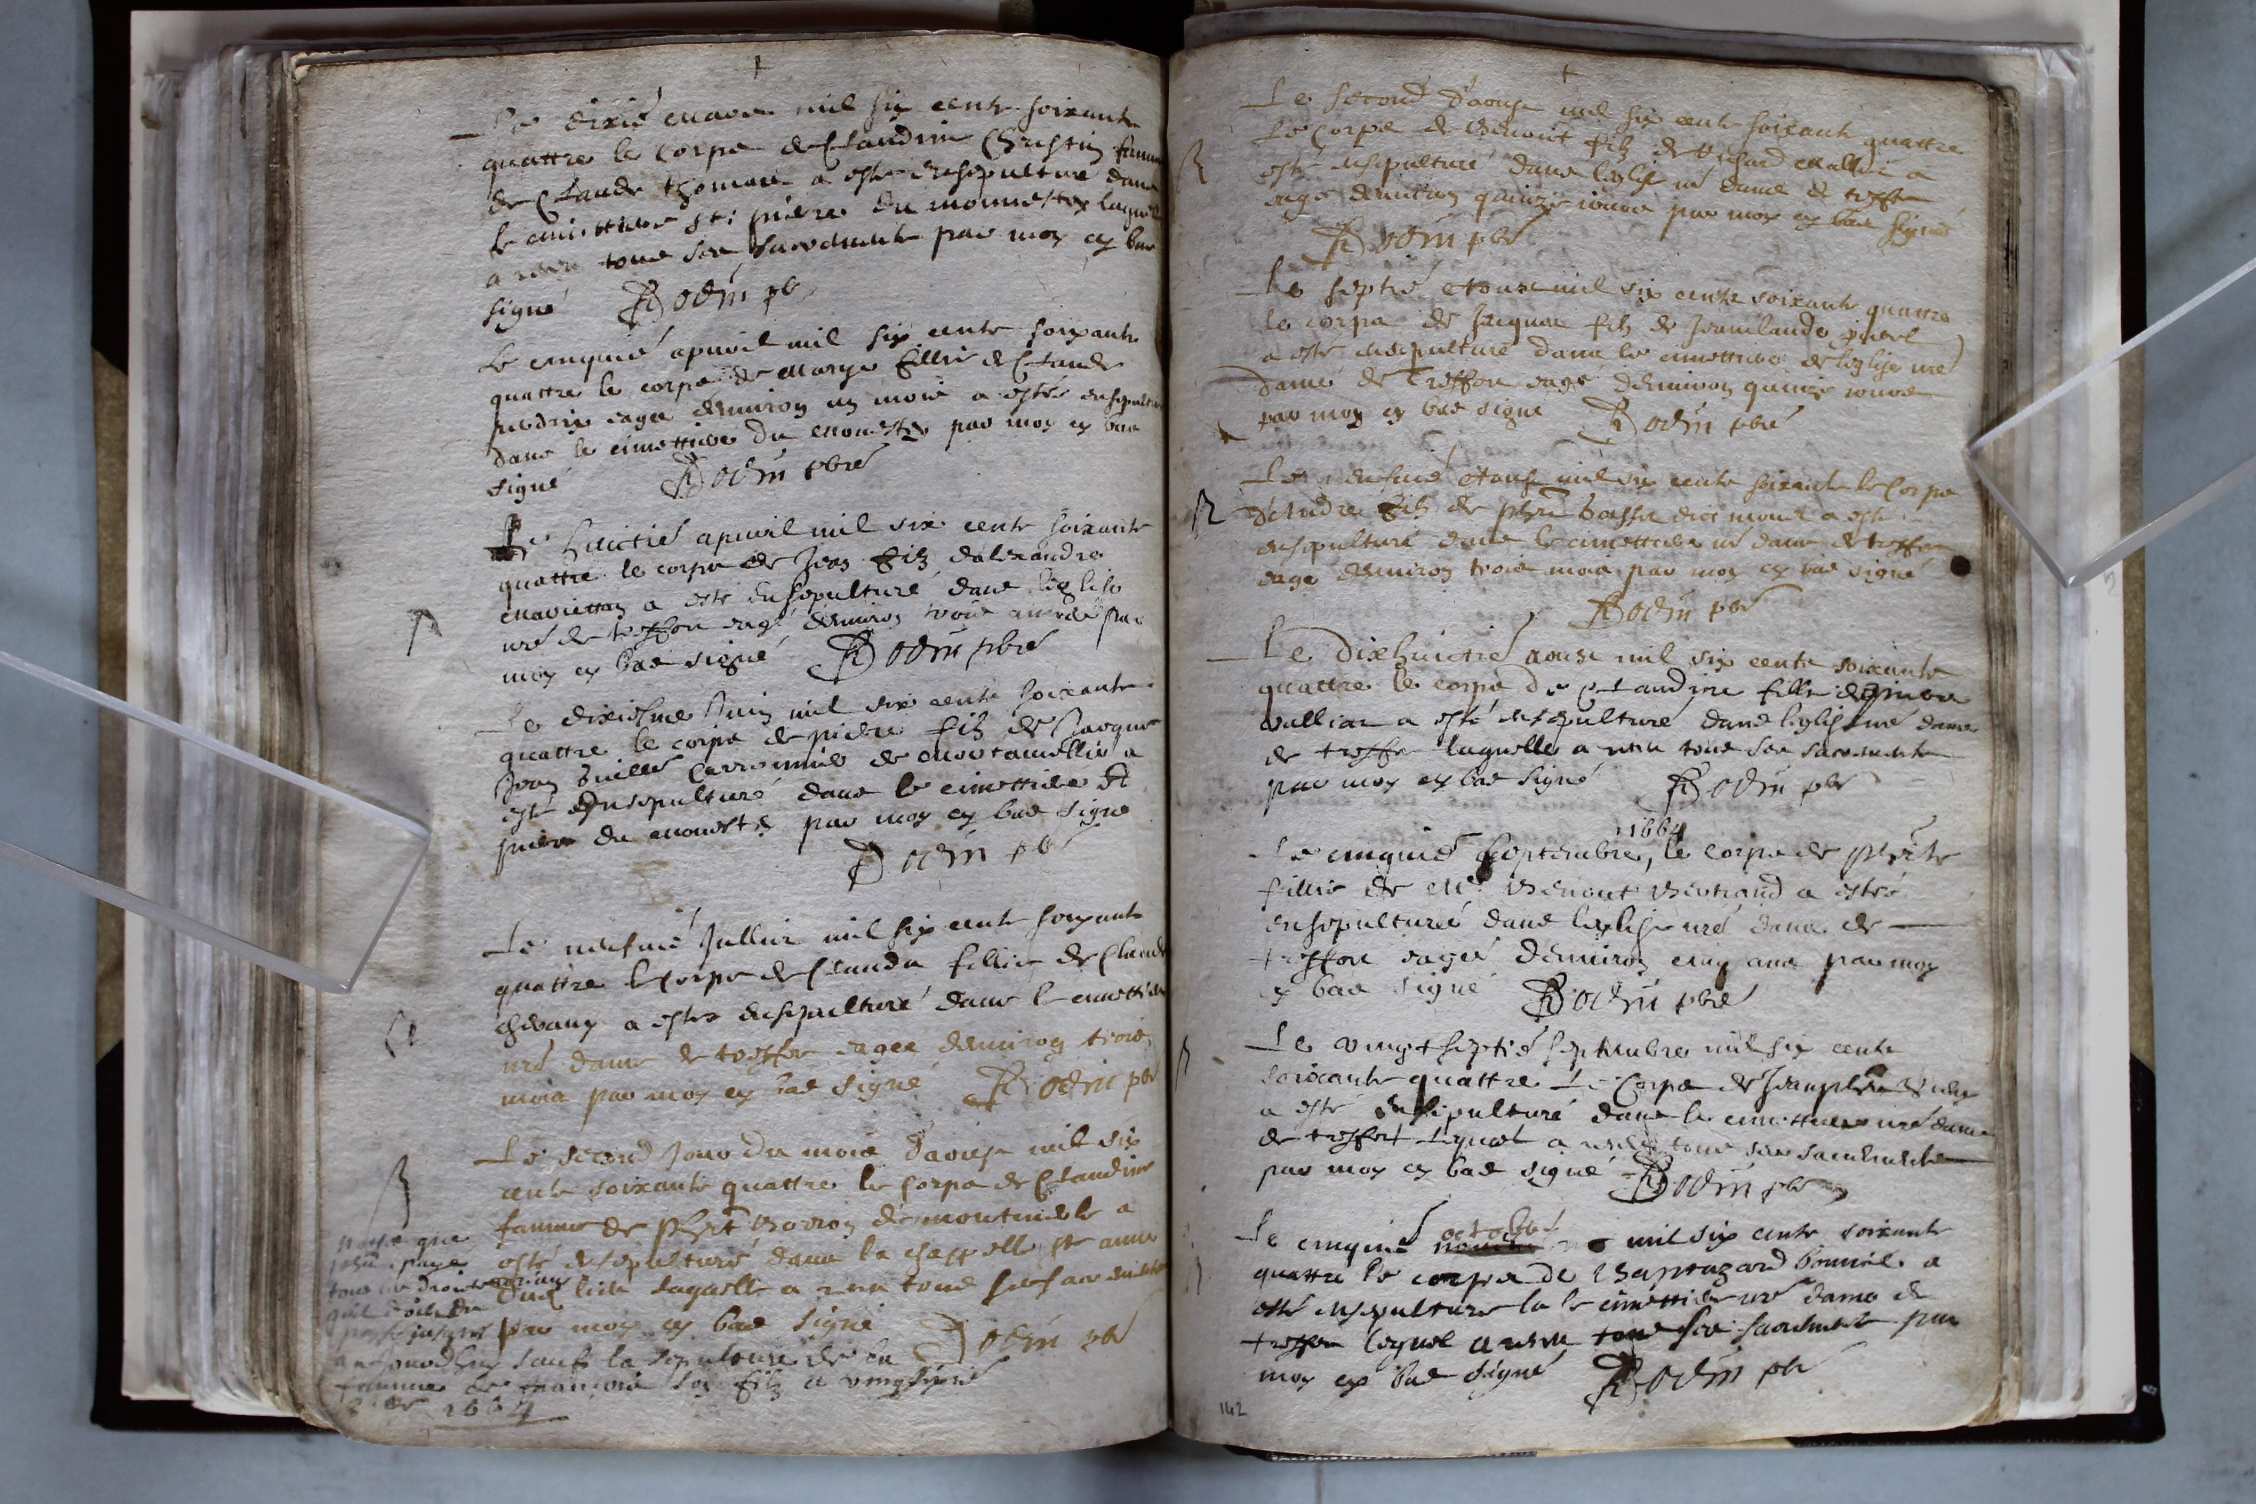 Le dixie mars mil six cents soixante
quattre le corps de Claudine Christin femme
de Claude thomas a este ensepulture dans
le cimettiere St pierre du monnestey laquelle
a receu tous ses sacrements par moy cy bas
signé Bodin pbr
Le cinquié apvril mil six cents soixante
quattre le corps de Marye fillie de Claude
perdrix eagee denviron un mois a estee ensepulturee
dans le cimettiere du monestey par moy cy bas
signé Bodin pbre
Le huictié apvril mil six cents soixante
quattre le corps de Jean filz dalexandre
a este ensepulturé dans leglise
nre de treffort eagé denviron trois par
moy cy bas signé Bodin pbre
Le dixiesme Juin mil six cents soixante
quattre le corps de pierre filz de Jacques
Jean de a
esté ensepulturé dans le cimettiere St
pierre du monestey par moy cy bas signé
Bodin pbr
Le neufvié Jullier mil six cents soixante
quattre le corps de Clauda fillie de Claude
chevaux a estee ensepulturé dans le cimettiere
nre dame de treffor eagee denviron trois
mois par moy cy bas signé Bodin pbr
Le second Jour du mois daoust mil six
cents soixante quattre le corps de Claudine
femme de phbt de a
esté ensepulturé dans la chappelle ste anne
laquelle a receu tous ses sacrements
par moy cy bas signé Bodin pbr
que
paye
tous droits
jusques
aujourdhuy sauf la sepulture de sa
femme de francois son filz
1664
Le second daoust mil six cents soixante quattre
Le corps de Benoit filz de a
esté ensepulturé dans leglise nre dame de treffor
eagé denviron quinze jours par moy cy bas signé
Bodin pbr
Le septié mil six cents soixante quattre
le corps de Jacques filz de
a esté ensepulturé dans le cimettiere de leglise nre
dame de Treffort eagé denviron quinze jours
par moy cy bas signé Bodin pbre
Le mil six cents soixante le corps
dAndre filz de a esté
ensepulturé dans le cimettiere nre dame de treffor
eagé denviron trois mois par moy cy bas signé
Bodin pbr
Le dixhuictié aoust mil six cents soixante
quattre le corps de Claudine fille de
a esté ensepulturé dans leglise nre dame
de treffor laquelle a receu tous ses sacrements
par moy cy bas signé Bodin pbr
1664
Le cinquié septembre, le corps de
fillie de Me Benoit Bertrand a estée
ensepulturée dans leglise nre dame de
treffort eagée denviron cinq ans par moy
cy bas signé Bodin pbre
Le vingt septié septembre mil six cents
soixante quattre Le Corps de
a esté ensepulturé dans le cimettiere nre dame
de treffort lequel a receu tous ses sacrements
par moy cy bas signé Bodin pbr
Le cinquié octobre mil six cents soixante
quattre le corps de a
esté ensepulturé la le cimettiere nre dame de
treffor lequel a receu tous ses sacrements par
moy cy bas signé Bodin pbr
142